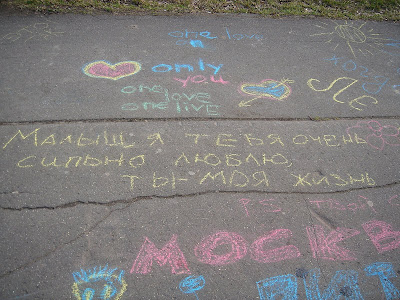 one love
on
only
you
one
love
one live
Малыш я тебя очень
сильно люблю,
ты-моя жизнь
P.S.
МОСКВ